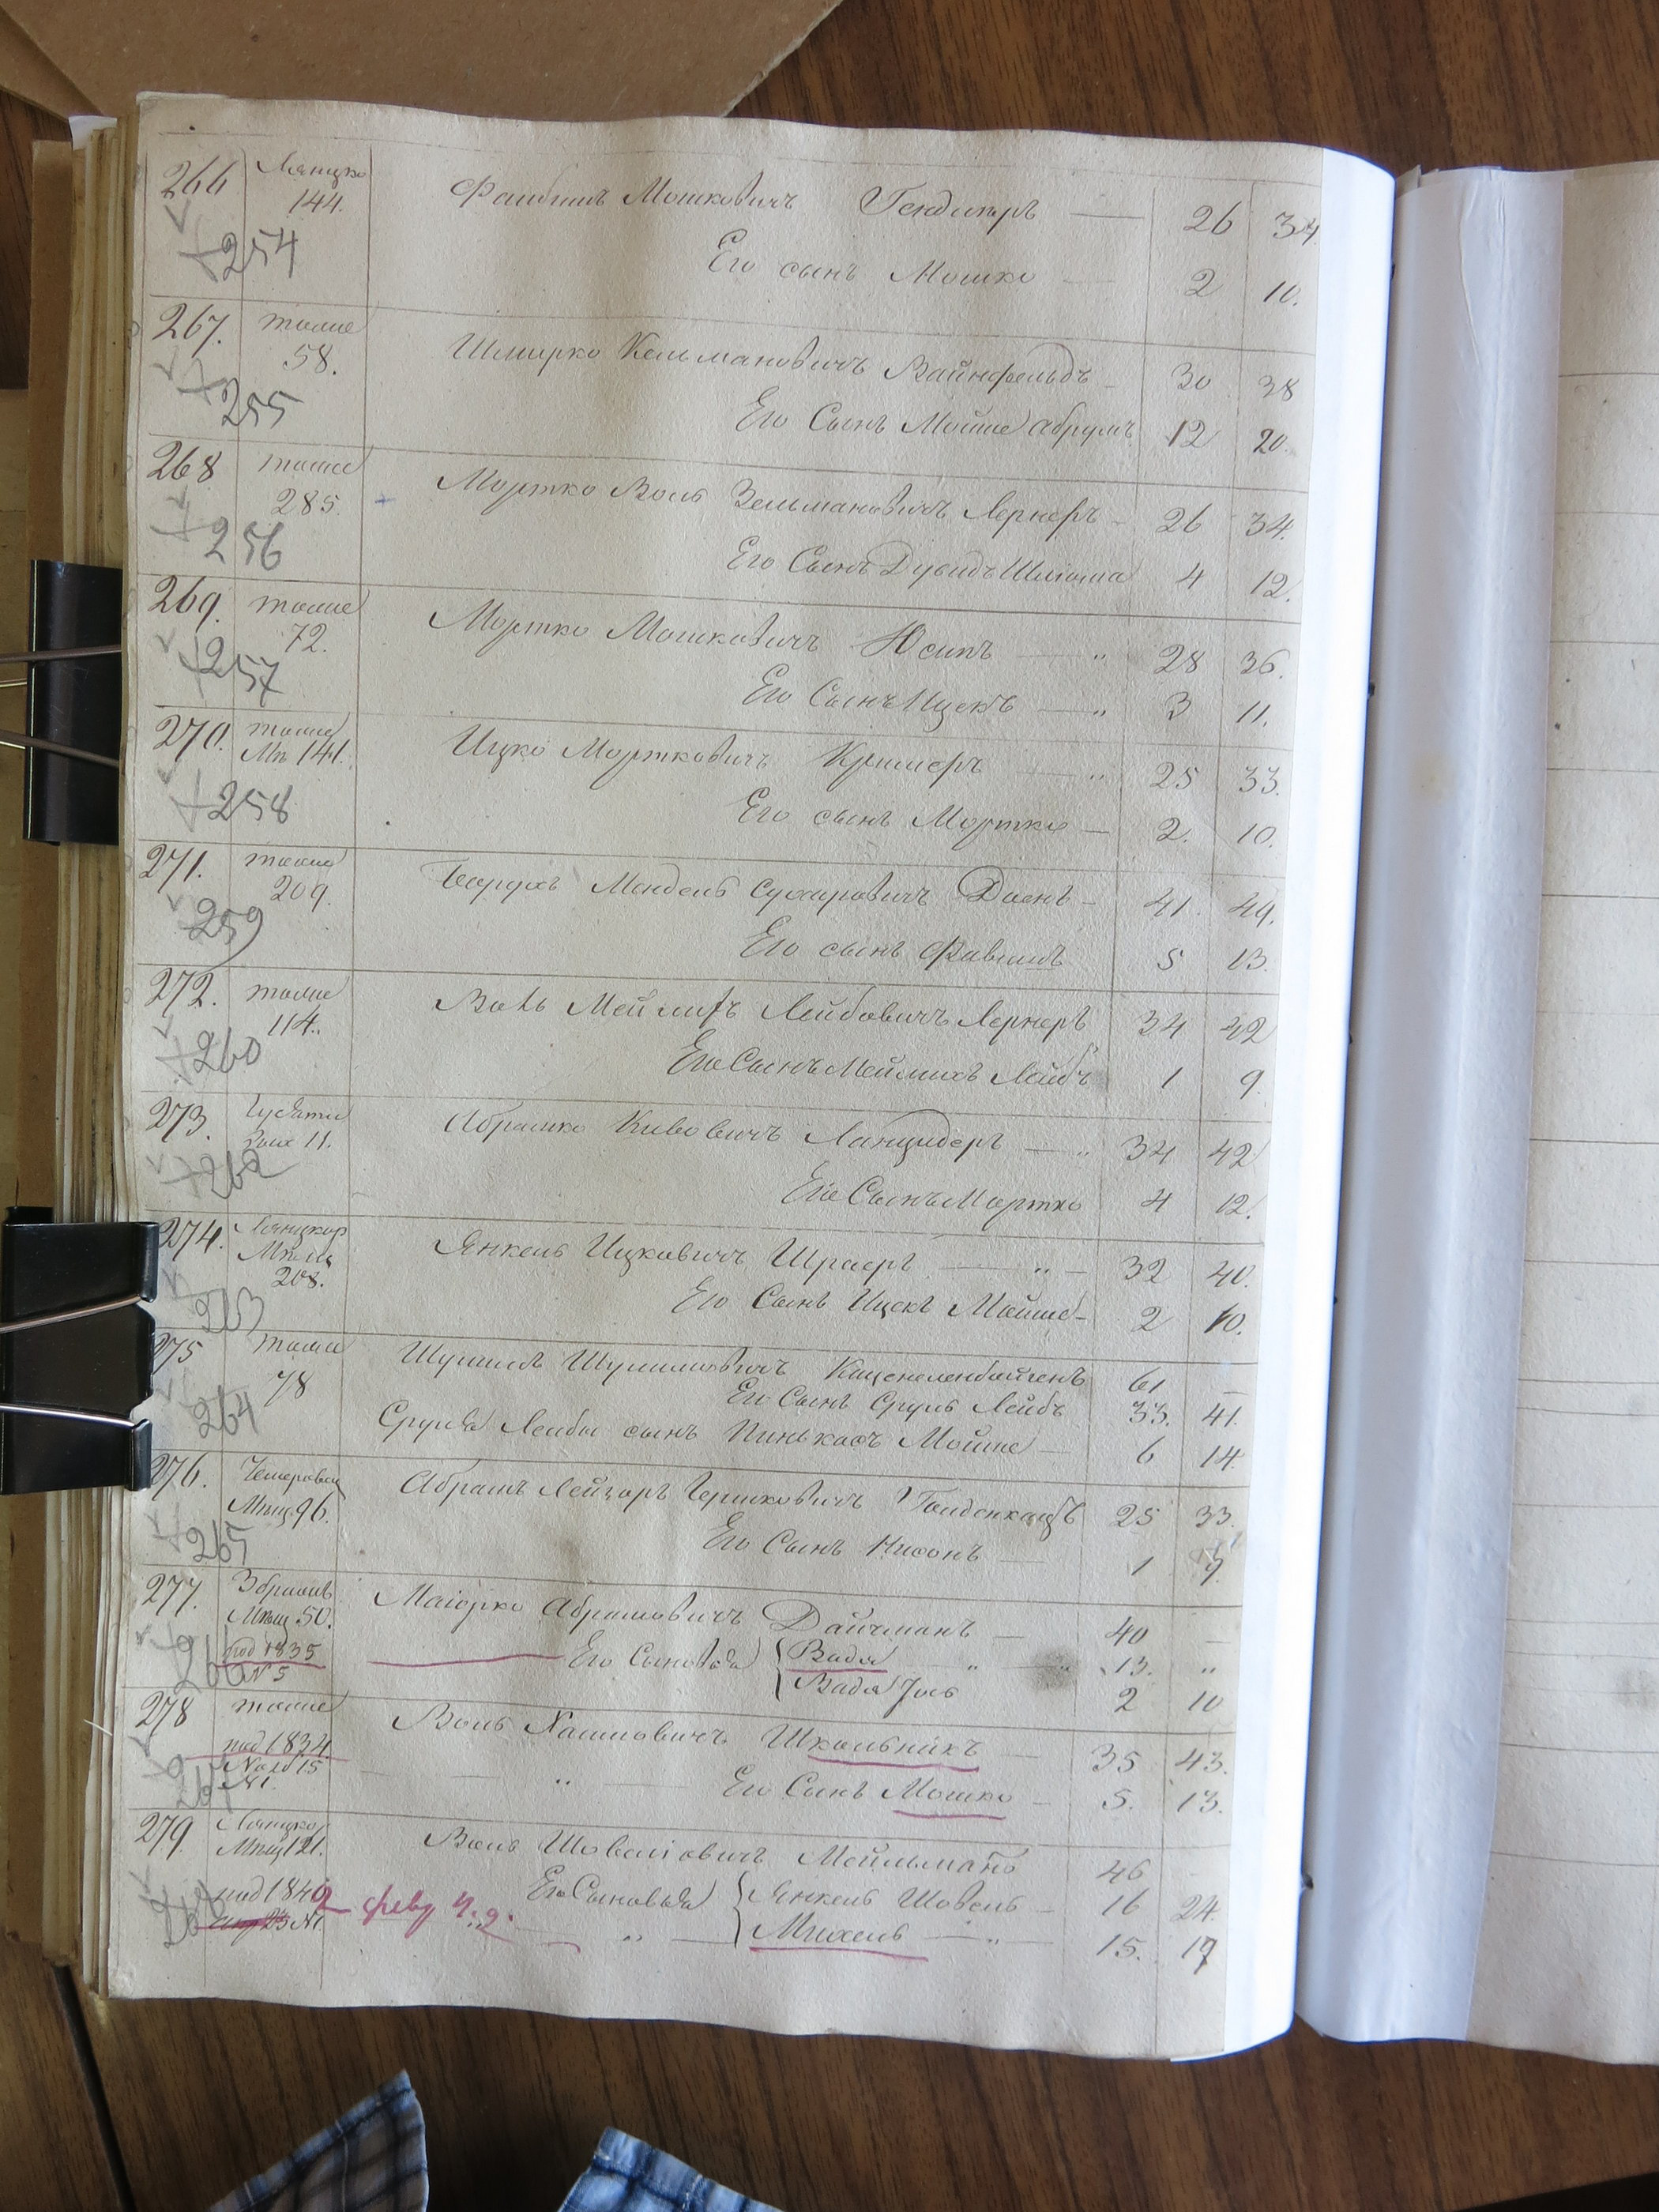 266 Лянцко 144. Файбишъ Мошковичъ 26 34
254 Его сынъ Мошко 2 10.
267. тоже 58. Шмирко Кельмановичъ Вайнфельдъ 30 38
255 Его Сынъ Мойше Абрумъ 12 20.
268 тоже 285. Мортко Воль Зельмановичъ Лернеръ 26 34.
256 Его Сынъ Дувидъ Шлiома 4 12.
269. тоже 72. Мортко Мошковичъ Юсимъ 28 36.
257 Его Сынъ Ицекъ 3 11.
270. тоже Мп 141. Ицко Мортковичъ Кримеръ 25 33.
258 Его сынъ Мортко 2. 10.
271. тоже 209. Мендель Сухаровичъ 41. 49.
259 Его сынъ Файвишъ 5 13.
272. тоже 114. Воль Меймихъ Лейбовичъ Лернеръ 34 42
260 Его Сынъ Меймихъ Лейбъ 1 9.
273. 11. Абрамко Кивовичъ 34 42
262 Его Сынъ Мортко 4 12.
274. Лянцкор 208. Янкель Ицковичъ Шраеръ 32 40.
263 Его Сынъ Ицекъ Мойше 2 10.
275 тоже 78 Шулимъ Шулимовичъ Каценеленбойгенъ 61 —
264 Его Сынъ Сруль Лейбъ 33. 41.
Сруля Лейбы сынъ Пинькасъ Мойше 6 14.
276. Чемеровец Мпщ 96. Абрамъ Лейзоръ Гершковичъ Гольденкацъ 25 33.
265 Его Сынъ Нисонъ 1 9.
277. Збрижъ Мпщ 50. Маiорко Абрамовичъ Дайчманъ 40 —
266 под 1835 N 5 Его Сыновья Вадя 13. "
Вадя Іось 2 10
278 тоже Воль Хаимовичъ Школьникъ 35 43.
267 под 1834. 15 N 1. Его Сынъ Мошко 5. 13.
279. Лянцкор Мпщ 121. Воль Шовелiовичъ Мейльманъ 46
под 1840 Его Сыновья Янкель Шовель 16 24.
23 N 1. февр Михель 15. 17